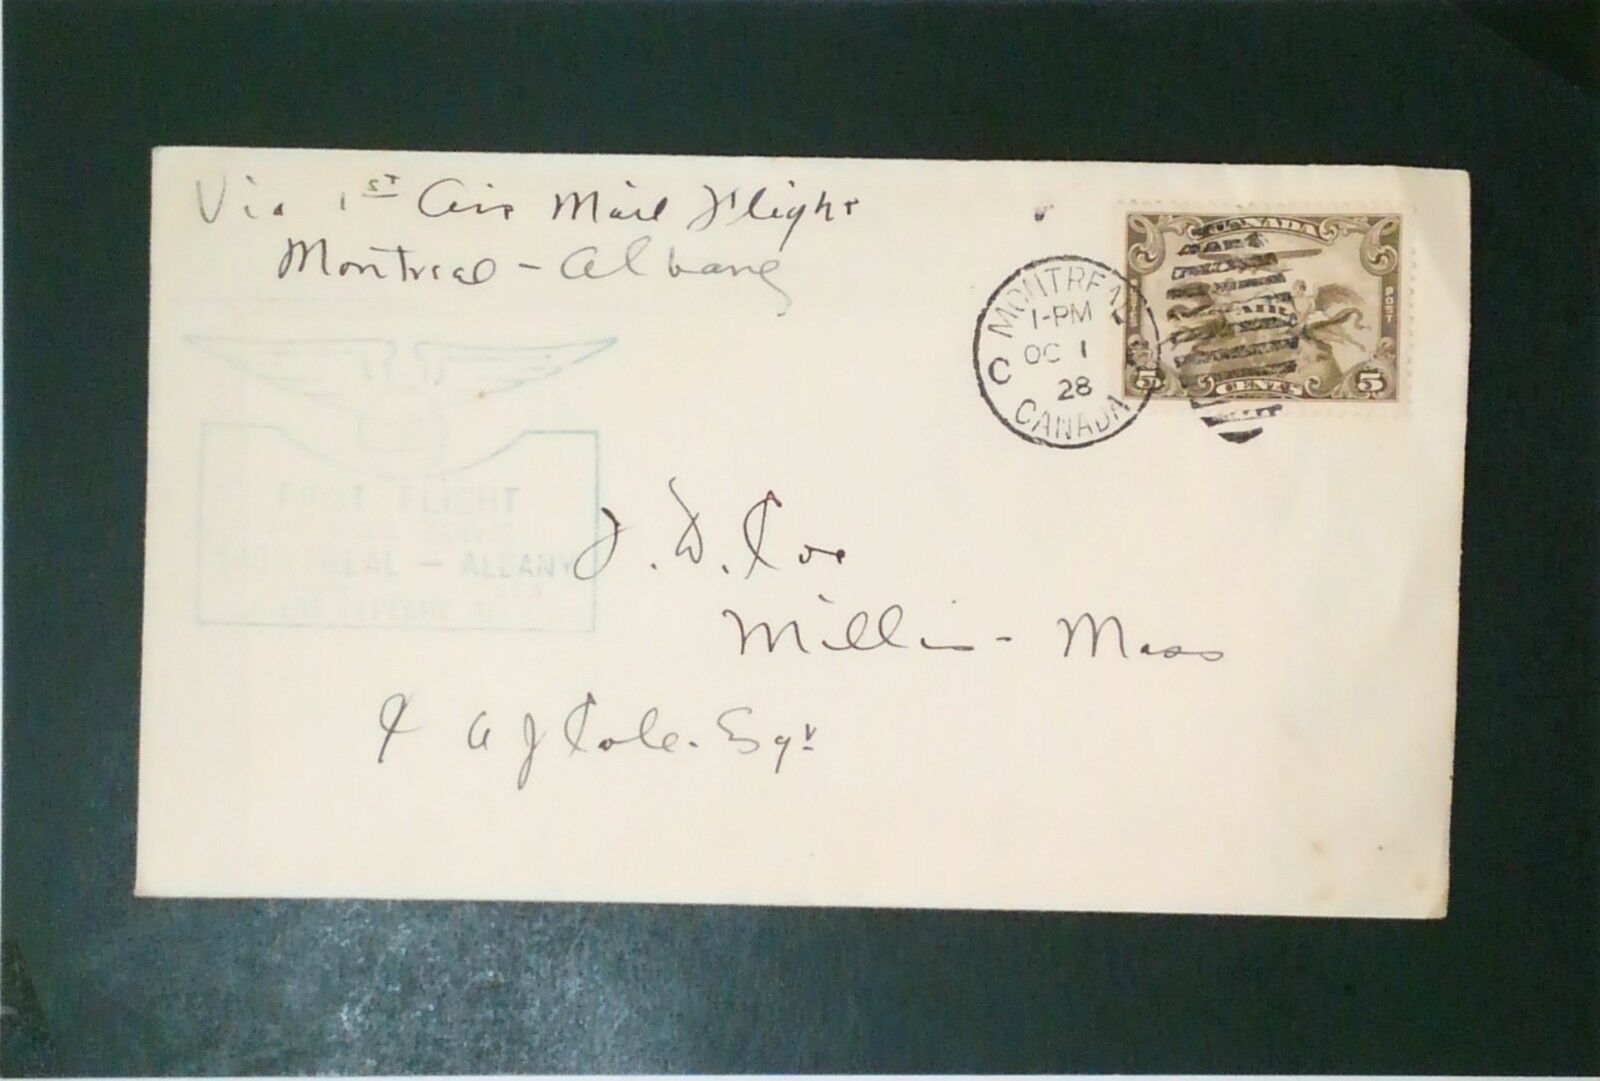 Via 1ST Air Mail Flight
Montreal - Albany
CANADA
POST
AIR
5 CENTS 5
MONTREAL
1-PM
OC 1
28
C
CANADA
FIRST FLIGHT
MONTREAL - ALBANY
J. W. Coe
Millis - Mass
A J Cole. Esqr